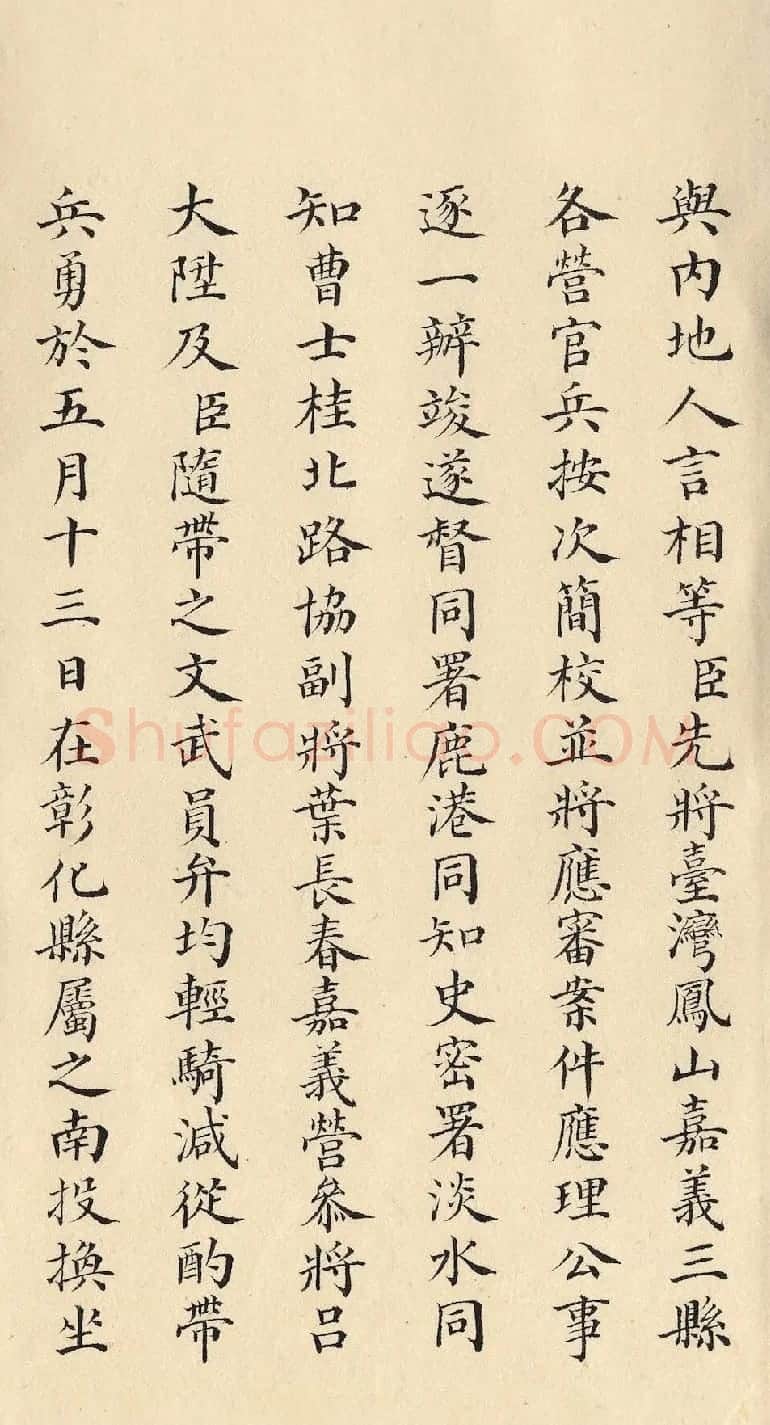 與内地人言相等臣先將臺灣鳳山嘉義三縣
各營官兵按次簡校並將應審案件應理公事
逐一辦竣遂督同署鹿港同知史密署淡水同
知曹士桂北路協副將葉長春嘉義營叅將呂
大陞及臣隨帶之文武員弁均輕騎減從酌帶
兵勇於五月十三日在彰化縣屬之南投換坐
Shufaziliao.COM